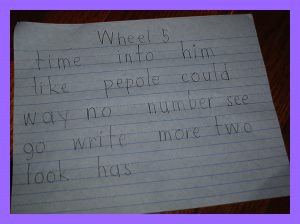 Wheel 5
time into him
like pepole could
way no number see
go write more two
look has